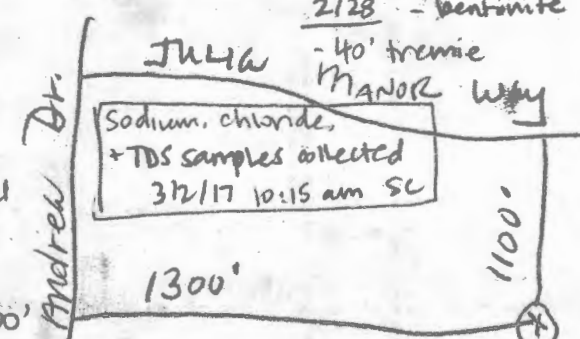 2/28 - bentonite
- 40' tremie
Julia
Manor Way
Andrew Dr.
Sodium, chloride,
+ TDS samples collected
3/2/17 10:15 am SC
1300'
1100'